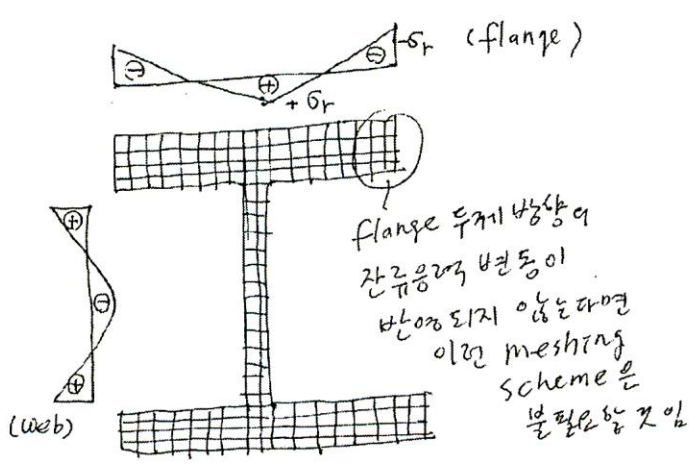 -σr (flange)
⊖ ⊕ ⊖
+σr
flange 두께 방향의
잔류응력 변동이
반영되지 않는다면
이런 meshing
scheme은
불필요할 것임
⊕
⊖
⊕
(web)